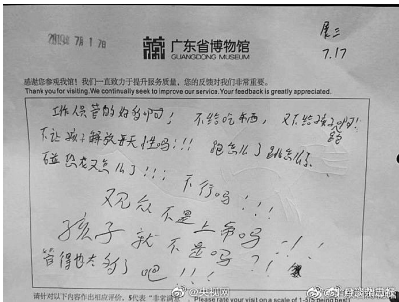 2019年7月17日
展三
7.17
广东省博物馆
GUANGDONG MUSEUM
感谢您参观我馆！我们一直致力于提升服务质量，您的反馈对我们非常重要。
Thank you for visiting.We continually seek to improve our service.Your feedback is greatly appreciated.
工作人员管的好多啊！ 不给吃东西，又不给孩子跑啊！
不让孩子解放天性吗！！！ 跑怎么了跳怎么了
碰恐龙又怎么了！！！
不行吗！！！
观众不是上帝吗
孩子就不是吗？！！
管得也太多了吧！！！
请针对以下内容作出相应评价，5代表“非常满
Please rate your visit on a scale of 1-5(5 being best)
@央视网